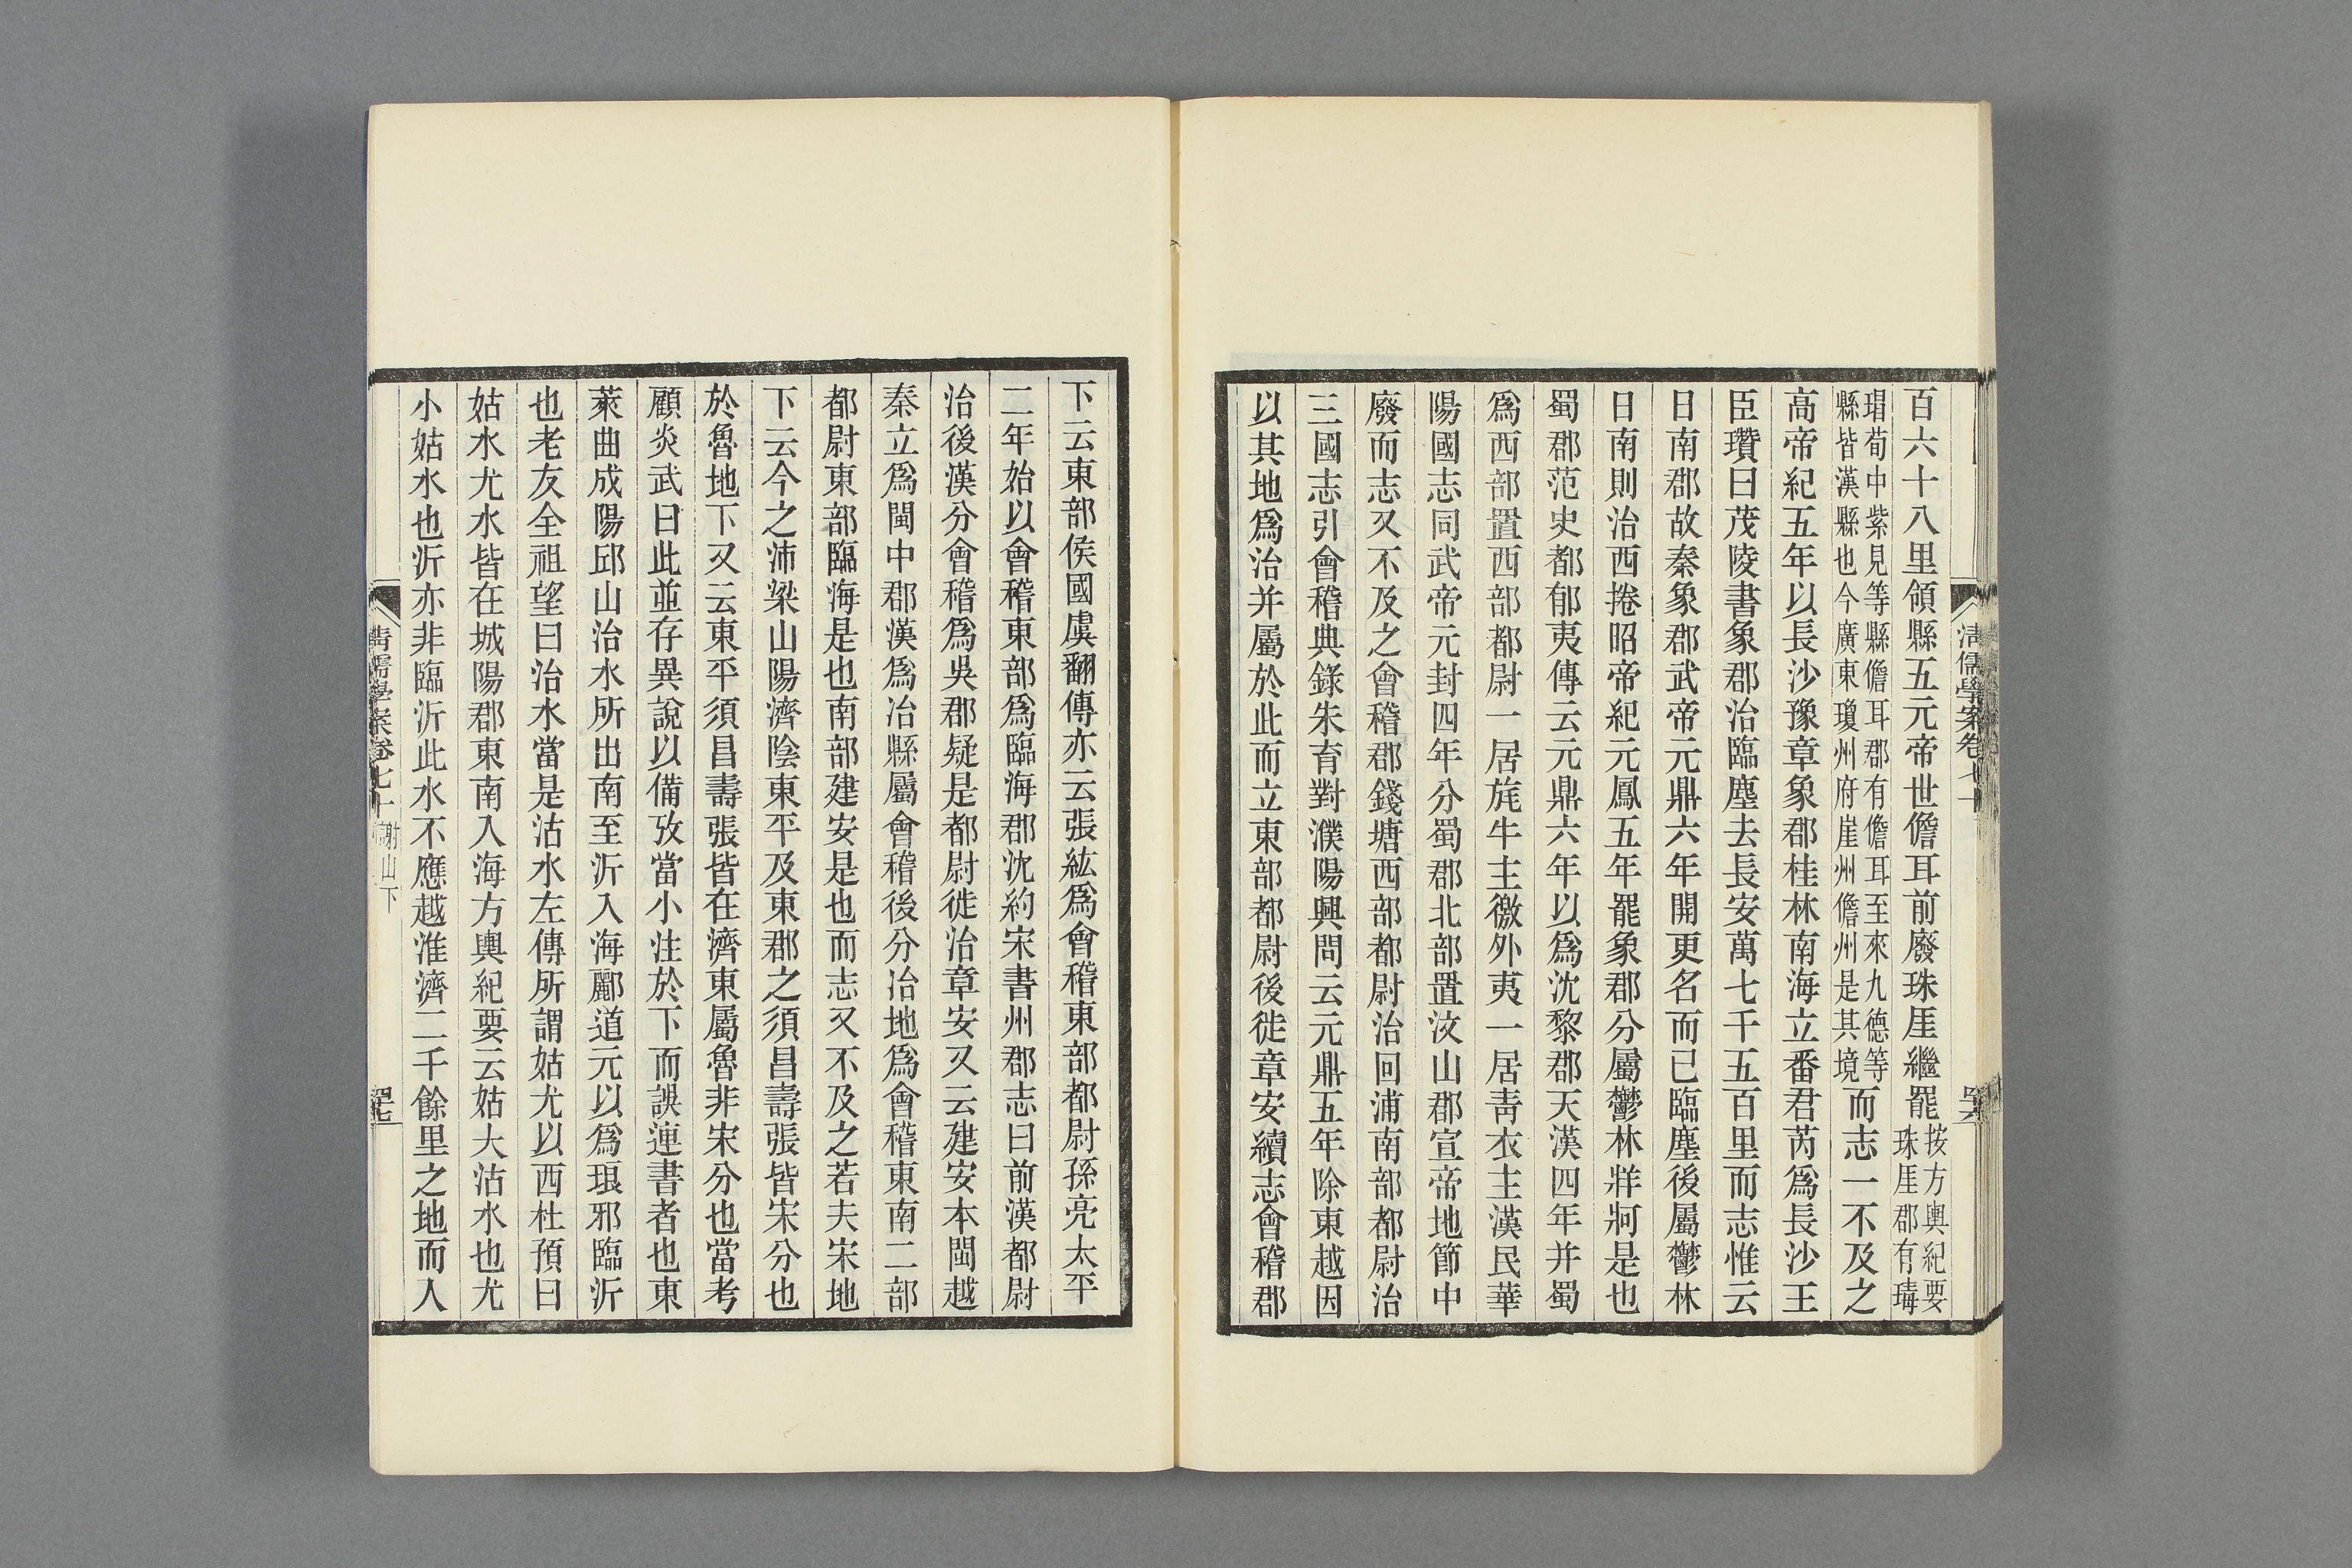 百六十八里領縣五元帝世儋耳前廢珠厓繼罷按方輿紀要珠厓郡有瑇
瑁苟中紫見等縣儋耳郡有儋耳至來九德等縣皆漢縣也今廣東瓊州府崖州儋州是其境而志一不及之
高帝紀五年以長沙豫章象郡桂林南海立番君芮爲長沙王
臣瓚曰茂陵書象郡治臨塵去長安萬七千五百里而志惟云
日南郡故秦象郡武帝元鼎六年開更名而已臨塵後屬鬱林
日南則治西捲昭帝紀元鳳五年罷象郡分屬鬱林牂牁是也
蜀郡范史都郁夷傳云元鼎六年以爲沈黎郡天漢四年并蜀
爲西部置西部都尉一居旄牛主徼外夷一居靑衣主漢民華
陽國志同武帝元封四年分蜀郡北部置汶山郡宣帝地節中
廢而志又不及之會稽郡錢塘西部都尉治回浦南部都尉治
三國志引會稽典錄朱育對濮陽興問云元鼎五年除東越因
以其地爲治并屬於此而立東部都尉後徙章安續志會稽郡
清儒學案卷七十
下云東部侯國虞翻傳亦云張紘爲會稽東部都尉孫亮太平
二年始以會稽東部爲臨海郡沈約宋書州郡志曰前漢都尉
治後漢分會稽爲吳郡疑是都尉徙治章安又云建安本閩越
秦立爲閩中郡漢爲冶縣屬會稽後分冶地爲會稽東南二部
都尉東部臨海是也南部建安是也而志又不及之若夫宋地
下云今之沛梁山陽濟陰東平及東郡之須昌壽張皆宋分也
於魯地下又云東平須昌壽張皆在濟東屬魯非宋分也當考
顧炎武曰此並存異說以備攷當小注於下而誤連書者也東
萊曲成陽邱山治水所出南至沂入海酈道元以爲琅邪臨沂
也老友全祖望曰治水當是沽水左傳所謂姑尤以西杜預曰
姑水尤水皆在城陽郡東南入海方輿紀要云姑大沽水也尤
小姑水也沂亦非臨沂此水不應越淮濟二千餘里之地而入
清儒學案卷七十 謝山下 四七